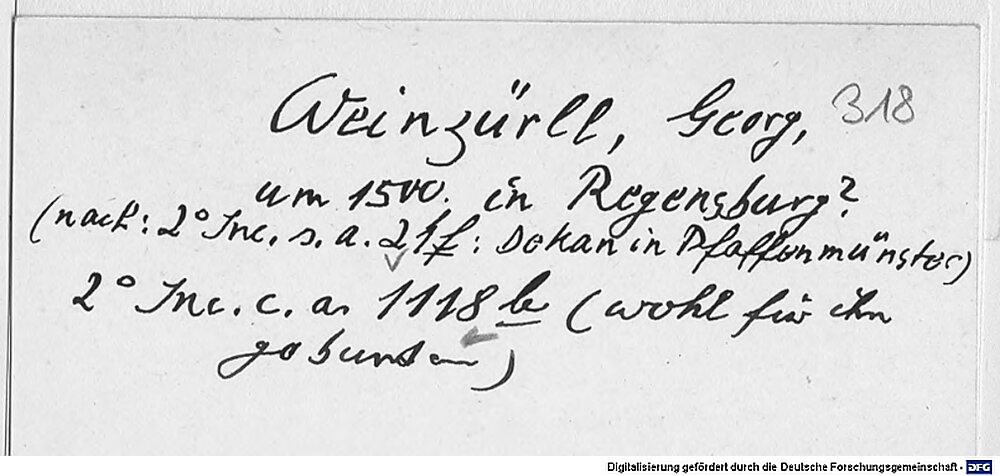 Weinzürll, Georg, 318
um 1500. in Regensburg?
(nach: 2° Inc. s. a. f: Dekan in Pfaffenmünster)
2° Inc. c. a. 1118 b (wohl für ihn
gebunden)
Digitalisierung gefördert durch die Deutsche Forschungsgemeinschaft - DFG